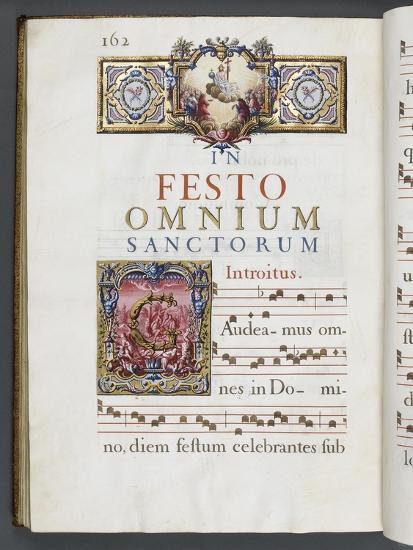 162
IN
FESTO
OMNIUM
SANCTORUM
Introitus.
GAudea- mus om-
nes in Do- mi-
no, diem feſtum celebrantes ſub